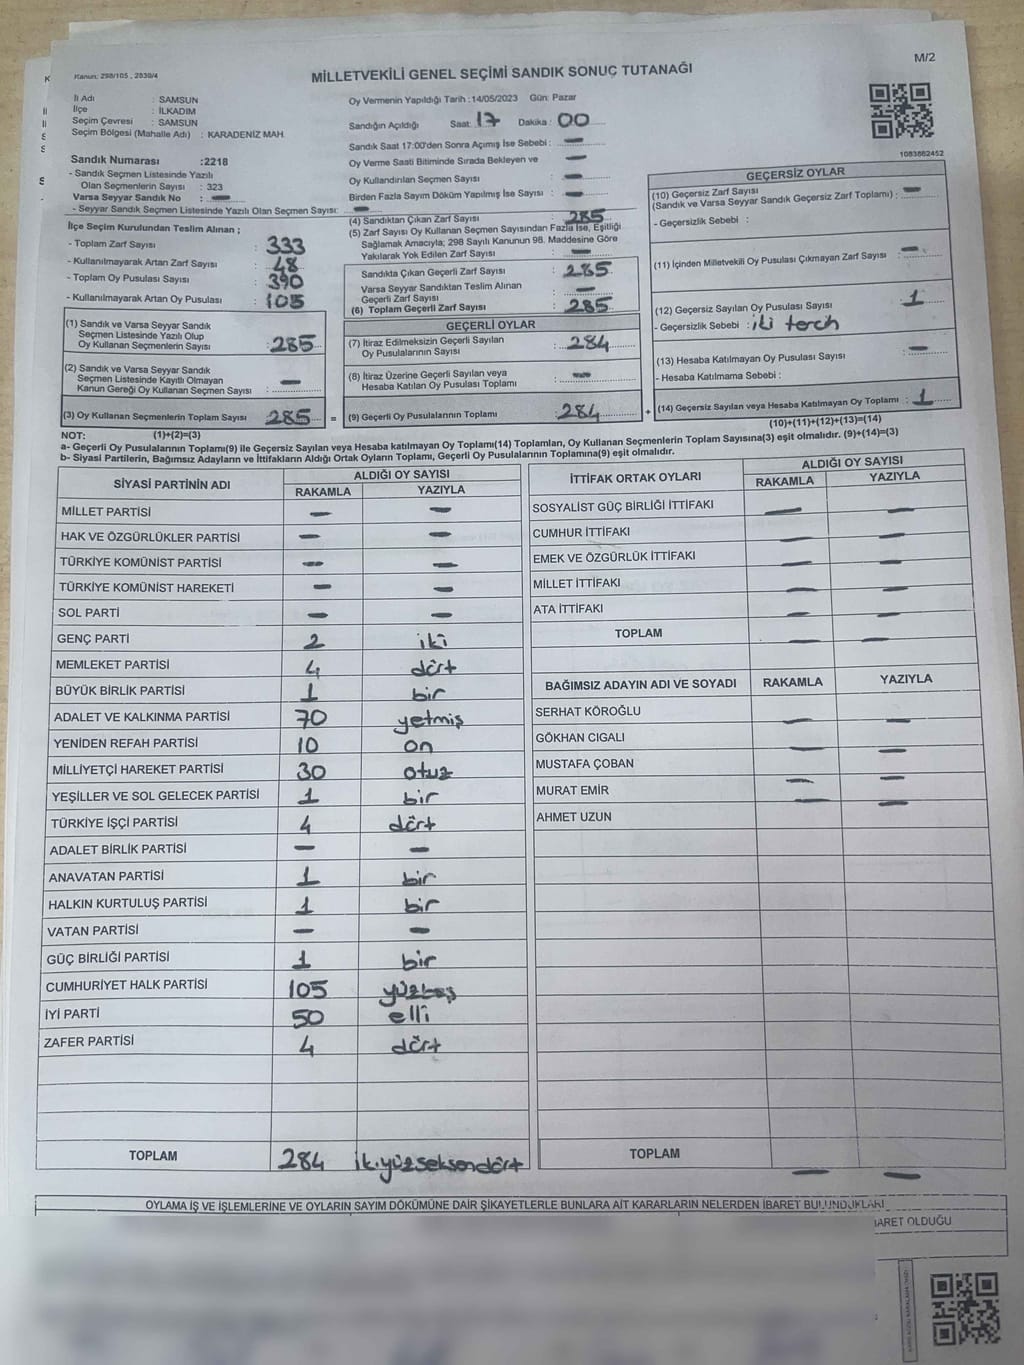 M/2
Kanun: 298/105 , 2839/4
MİLLETVEKİLİ GENEL SEÇİMİ SANDIK SONUÇ TUTANAĞI
İl Adı : SAMSUN
İlçe : İLKADIM
Seçim Çevresi : SAMSUN
Seçim Bölgesi (Mahalle Adı) : KARADENİZ MAH.
Sandık Numarası :2218
- Sandık Seçmen Listesinde Yazılı
Olan Seçmenlerin Sayısı : 323
Varsa Seyyar Sandık No : —
- Seyyar Sandık Seçmen Listesinde Yazılı Olan Seçmen Sayısı: —
İlçe Seçim Kurulundan Teslim Alınan ;
- Toplam Zarf Sayısı : 333
- Kullanılmayarak Artan Zarf Sayısı : 48
- Toplam Oy Pusulası Sayısı : 390
- Kullanılmayarak Artan Oy Pusulası : 105
(1) Sandık ve Varsa Seyyar Sandık
Seçmen Listesinde Yazılı Olup
Oy Kullanan Seçmenlerin Sayısı : 285
(2) Sandık ve Varsa Seyyar Sandık
Seçmen Listesinde Kayıtlı Olmayan
Kanun Gereği Oy Kullanan Seçmen Sayısı : —
(3) Oy Kullanan Seçmenlerin Toplam Sayısı : 285 =
(1)+(2)=(3)
Oy Vermenin Yapıldığı Tarih :14/05/2023 Gün: Pazar
Sandığın Açıldığı Saat: 17 Dakika : 00
Sandık Saat 17:00'den Sonra Açımış İse Sebebi : —
Oy Verme Saati Bitiminde Sırada Bekleyen ve —
Oy Kullandırılan Seçmen Sayısı : —
Birden Fazla Sayım Döküm Yapılmış İse Sayısı : —
(4) Sandıktan Çıkan Zarf Sayısı : 285
(5) Zarf Sayısı Oy Kullanan Seçmen Sayısından Fazla İse, Eşitliği
Sağlamak Amacıyla; 298 Sayılı Kanunun 98. Maddesine Göre
Yakılarak Yok Edilen Zarf Sayısı : —
Sandıkta Çıkan Geçerli Zarf Sayısı : 285
Varsa Seyyar Sandıktan Teslim Alınan
Geçerli Zarf Sayısı : —
(6) Toplam Geçerli Zarf Sayısı : 285
GEÇERLİ OYLAR
(7) İtiraz Edilmeksizin Geçerli Sayılan
Oy Pusulalarının Sayısı : 284
(8) İtiraz Üzerine Geçerli Sayılan veya
Hesaba Katılan Oy Pusulası Toplamı : —
(9) Geçerli Oy Pusulalarının Toplamı : 284 +
1083862452
GEÇERSİZ OYLAR
(10) Geçersiz Zarf Sayısı
(Sandık ve Varsa Seyyar Sandık Geçersiz Zarf Toplamı) : —
- Geçersizlik Sebebi :
(11) İçinden Milletvekili Oy Pusulası Çıkmayan Zarf Sayısı : —
(12) Geçersiz Sayılan Oy Pusulası Sayısı : 1
- Geçersizlik Sebebi : iki terch
(13) Hesaba Katılmayan Oy Pusulası Sayısı : —
- Hesaba Katılmama Sebebi :
(14) Geçersiz Sayılan veya Hesaba Katılmayan Oy Toplamı : 1
(10)+(11)+(12)+(13)=(14)
NOT:
a- Geçerli Oy Pusulalarının Toplamı(9) ile Geçersiz Sayılan veya Hesaba katılmayan Oy Toplamı(14) Toplamları, Oy Kullanan Seçmenlerin Toplam Sayısına(3) eşit olmalıdır. (9)+(14)=(3)
b- Siyasi Partilerin, Bağımsız Adayların ve İttifakların Aldığı Ortak Oyların Toplamı, Geçerli Oy Pusulalarının Toplamına(9) eşit olmalıdır.
SİYASİ PARTİNİN ADI ALDIĞI OY SAYISI
RAKAMLA YAZIYLA
MİLLET PARTİSİ — —
HAK VE ÖZGÜRLÜKLER PARTİSİ — —
TÜRKİYE KOMÜNİST PARTİSİ — —
TÜRKİYE KOMÜNİST HAREKETİ — —
SOL PARTİ — —
GENÇ PARTİ 2 iki
MEMLEKET PARTİSİ 4 dört
BÜYÜK BİRLİK PARTİSİ 1 bir
ADALET VE KALKINMA PARTİSİ 70 yetmiş
YENİDEN REFAH PARTİSİ 10 on
MİLLİYETÇİ HAREKET PARTİSİ 30 otuz
YEŞİLLER VE SOL GELECEK PARTİSİ 1 bir
TÜRKİYE İŞÇİ PARTİSİ 4 dört
ADALET BİRLİK PARTİSİ — —
ANAVATAN PARTİSİ 1 bir
HALKIN KURTULUŞ PARTİSİ 1 bir
VATAN PARTİSİ — —
GÜÇ BİRLİĞİ PARTİSİ 1 bir
CUMHURİYET HALK PARTİSİ 105 yüzbeş
İYİ PARTİ 50 elli
ZAFER PARTİSİ 4 dört
TOPLAM 284 ikiyüzseksendört
İTTİFAK ORTAK OYLARI ALDIĞI OY SAYISI
RAKAMLA YAZIYLA
SOSYALİST GÜÇ BİRLİĞİ İTTİFAKI — —
CUMHUR İTTİFAKI — —
EMEK VE ÖZGÜRLÜK İTTİFAKI — —
MİLLET İTTİFAKI — —
ATA İTTİFAKI — —
TOPLAM — —
BAĞIMSIZ ADAYIN ADI VE SOYADI RAKAMLA YAZIYLA
SERHAT KÖROĞLU — —
GÖKHAN CIGALI — —
MUSTAFA ÇOBAN — —
MURAT EMİR — —
AHMET UZUN
TOPLAM — —
OYLAMA İŞ VE İŞLEMLERİNE VE OYLARIN SAYIM DÖKÜMÜNE DAİR ŞİKAYETLERLE BUNLARA AİT KARARLARIN NELERDEN İBARET BULUNDUKLARI
BARET OLDUĞU